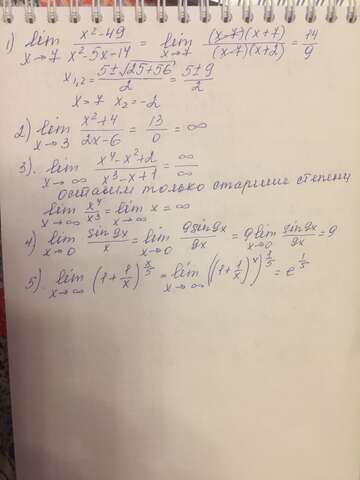 1) lim x→7 (x²-49)/(x²-5x-14) = lim x→7 ((x-7)(x+7))/((x-7)(x+2)) = 14/9
x₁,₂ = (5±√25+56)/2 = (5±9)/2
x=7 x₂=-2
2) lim x→3 (x²+4)/(2x-6) = 13/0 = ∞
3). lim x→∞ (x⁴-x²+2)/(x³-x+1) = ∞/∞
оставим только старшие степени
lim x→∞ x⁴/x³ = lim x→∞ x = ∞
4) lim x→0 sin9x/x = lim x→0 9sin9x/9x = 9 lim x→0 sin9x/9x = 9
5). lim x→∞ (1+1/x)^(x/5) = lim x→∞ ((1+1/x)^x)^(1/5) = e^(1/5)